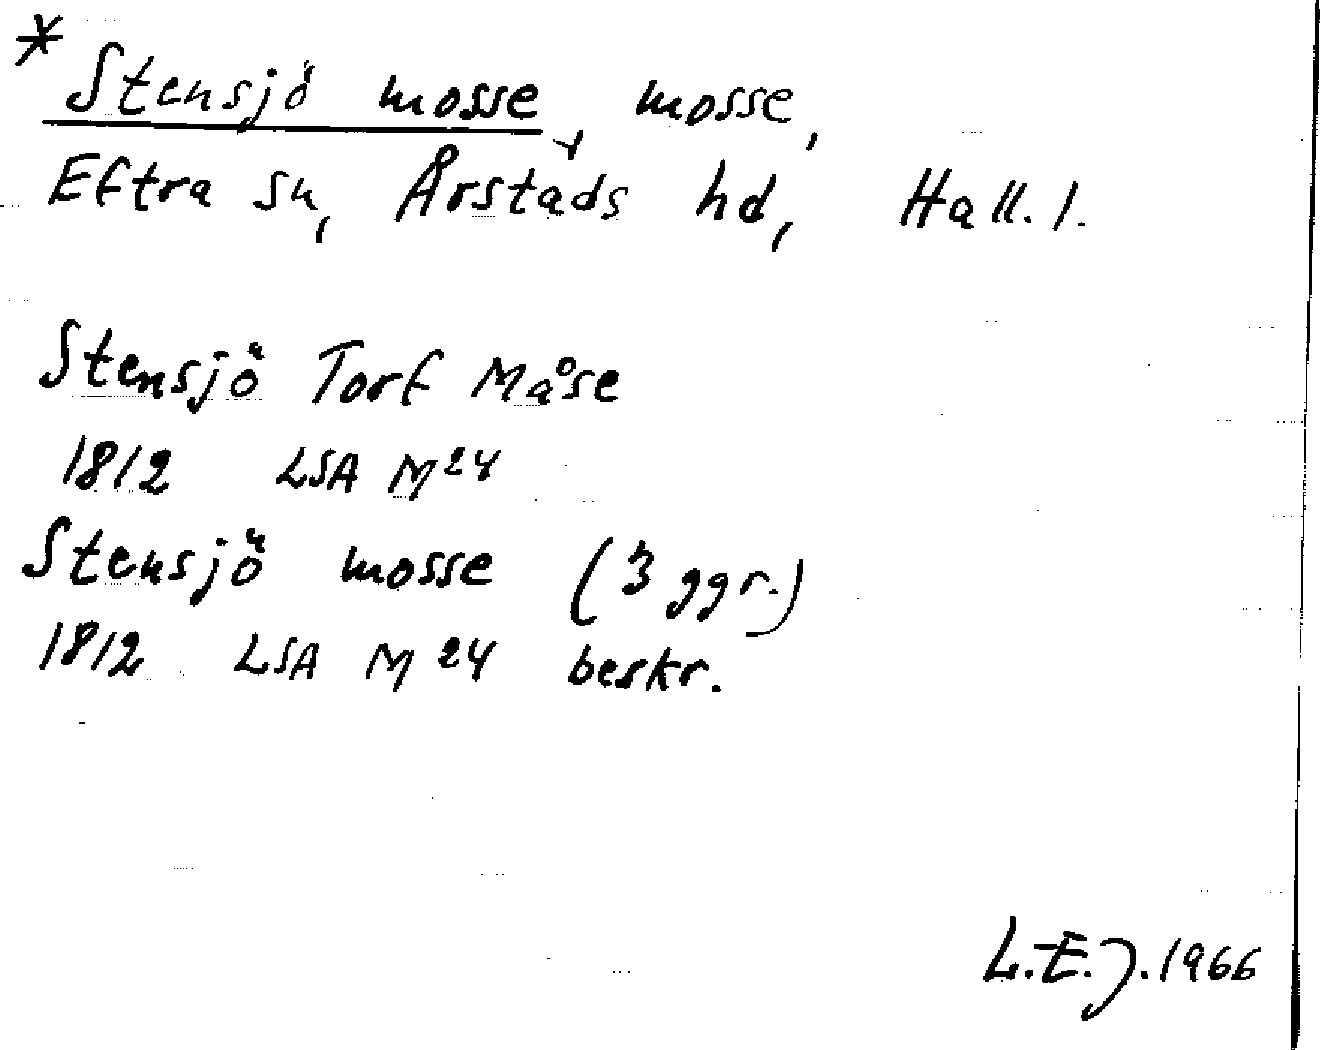 * Stensjö mosse, mosse,
Eftra sn, Årstads hd, Hall. l.
Stensjö Torf Måse
1812 LSA M24
Stensjö mosse (3 ggr.)
1812 LSA M24 beskr.
L.E.J. 1966